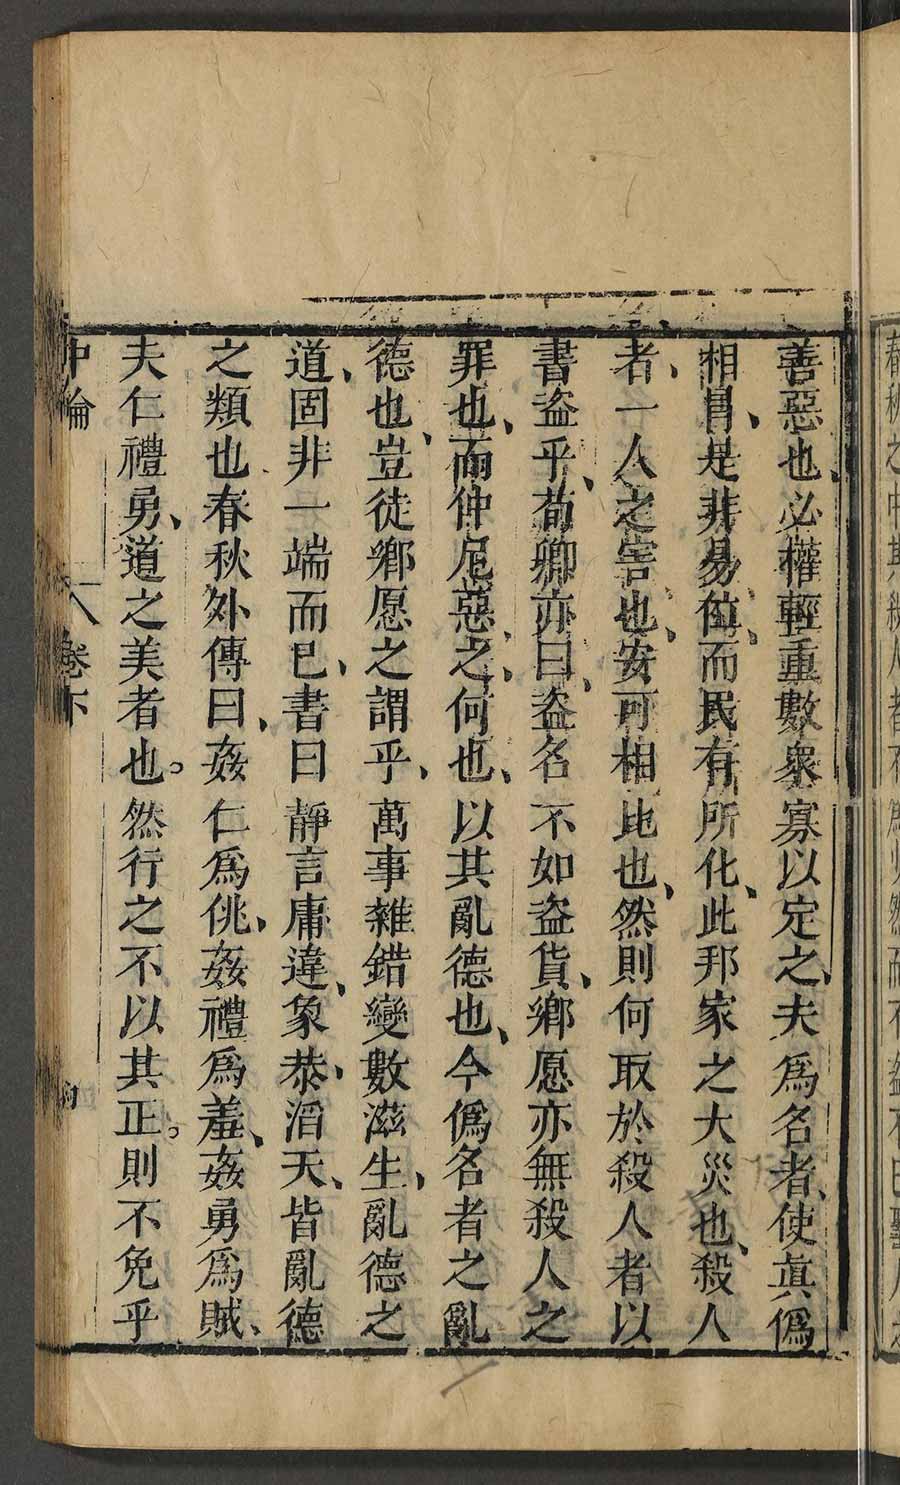 善惡也、必權輕重數衆寡以定之、夫爲名者、使眞僞
相冒、是非易位、而民有所化、此邦家之大災也、殺人
者、一人之害也、安可相比也、然則何取於殺人者以
書盗乎、荀卿亦曰、盗名不如盗貨、鄉愿亦無殺人之
罪也、而仲尼惡之、何也、以其亂德也、今僞名者之亂
德也、豈徒鄉愿之謂乎、萬事雜錯變數滋生、亂德之
道、固非一端而已、書曰靜言庸違、象恭滔天、皆亂德
之類也春秋外傳曰、姦仁爲佻、姦禮爲羞、姦勇爲賊、
夫仁禮勇、道之美者也。然行之不以其正。則不免乎
中論 卷下